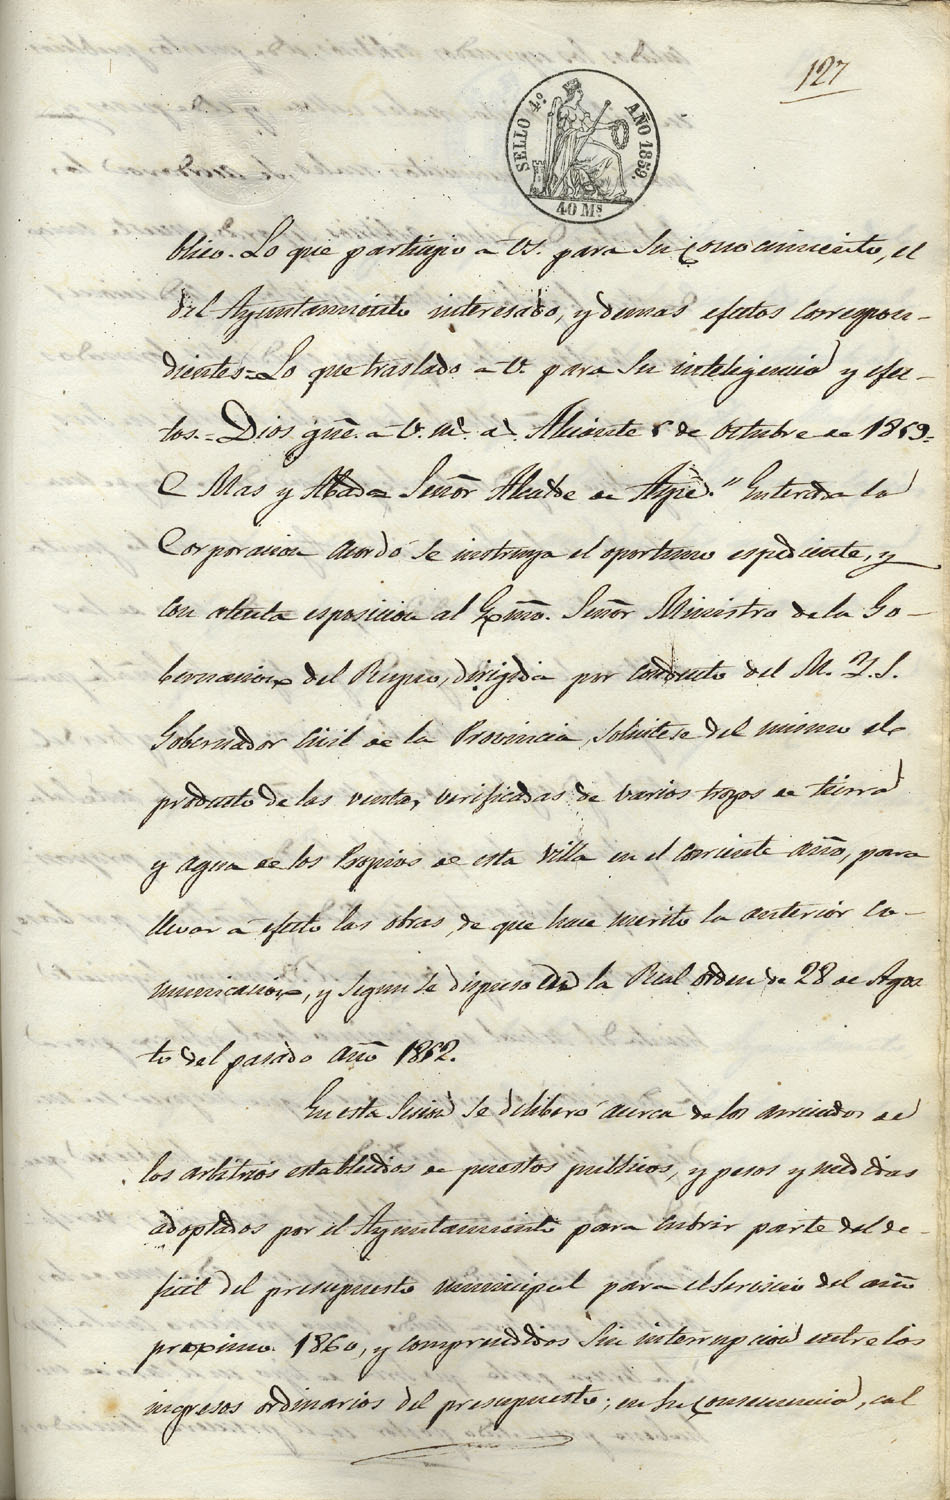 127
SELLO 4.º AÑO 1859.
40 Ms
blico. Lo que participo a VS. para su conocimiento, el
del Ayuntamiento interesado, y demas efectos correspon-
dientes = Lo que traslado a V. para su inteligencia y efec-
tos. = Dios gue. a V. m. a. Alicante 5 de Octubre de 1859 =
C Mas y Abad = Señor Alcalde de Aspe." Enterada la
Corporacion acordó se instruya el oportuno espediente, y
con atenta esposicion al Exmo. Señor Ministro de la Go-
bernacion del Reyno, dirigida por conducto del M. Y. S.
Gobernador Civil de la Provincia, solicitese del mismo el
producto de las ventas verificadas de varios trozos de tierra
y agua de los Propios de esta Villa en el corriente año, para
llevar a efecto las obras, de que hace merito la anterior co-
municacion, y segun se dispuso en la Real orden de 28 de Agos
to del pasado año 1852.
En esta Sesion se deliberó acerca de los arriendos de
los arbitrios establecidos de puestos publicos, y pesos y medidas
adoptados por el Ayuntamiento para cubrir parte del de-
ficit del presupuesto municipal para el servicio del año
proximo 1860, y comprendidos sin interrupcion entre los
ingresos ordinarios del presupuesto; en su consecuencia, cal